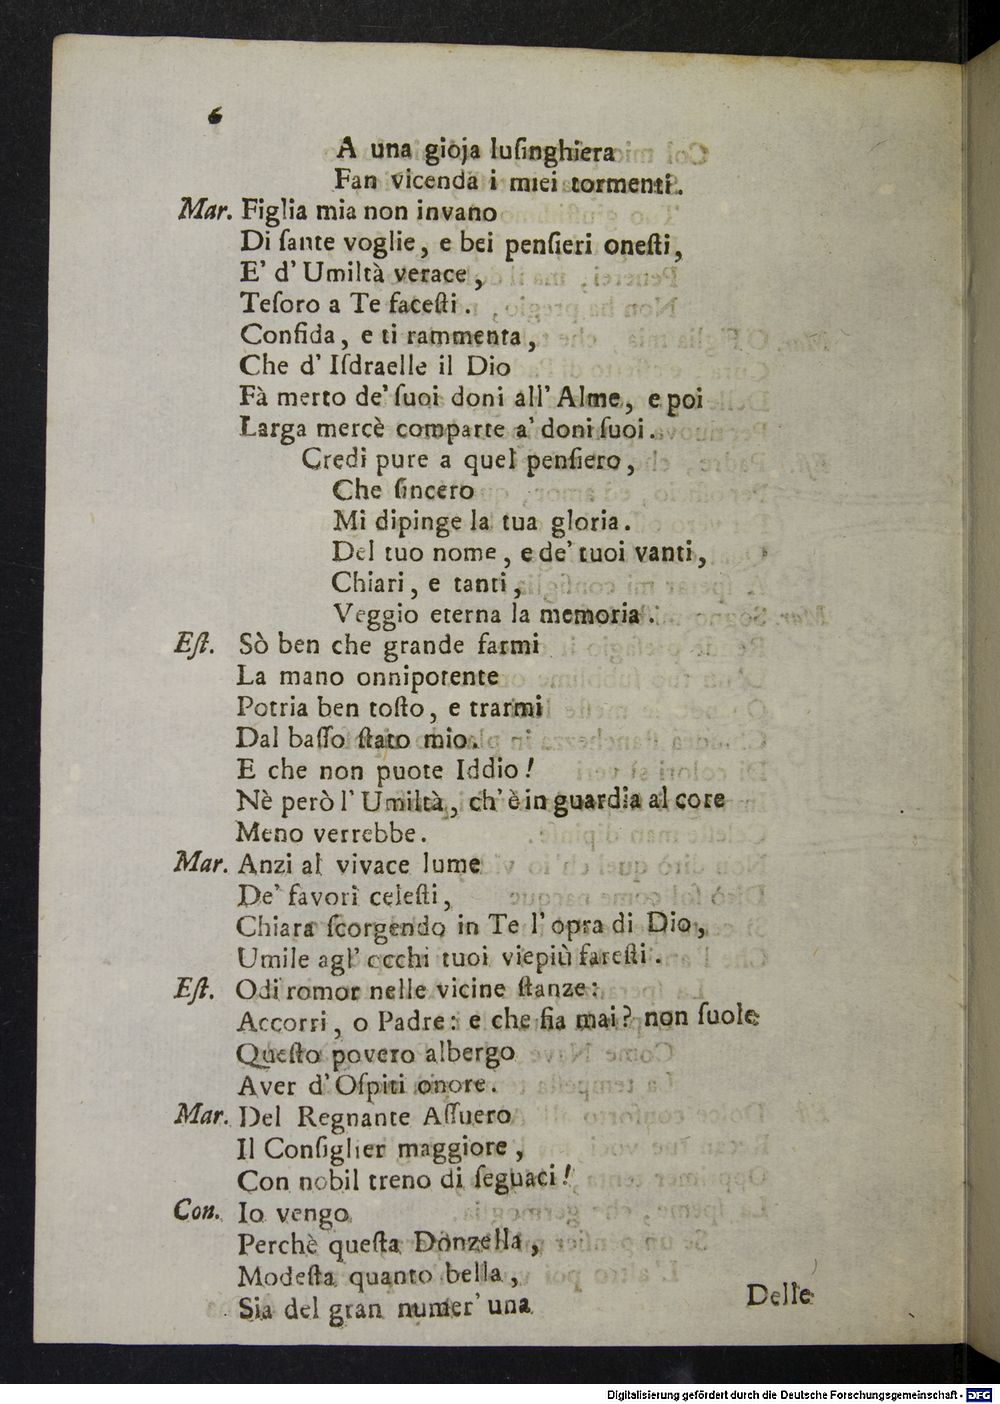 6
A una gioja luſinghiera
Fan vicenda i miei tormenti.
Mar. Figlia mia non invano
Di ſante voglie, e bei penſieri oneſti,
E' d' Umiltà verace,
Teſoro a Te faceſti.
Confida, e ti rammenta,
Che d' Iſdraelle il Dio
Fà merto de' ſuoi doni all' Alme, e poi
Larga mercè comparte a' doni ſuoi.
Credi pure a quel penſiero,
Che ſincero
Mi dipinge la tua gloria.
Del tuo nome, e de' tuoi vanti,
Chiari, e tanti,
Veggio eterna la memoria.
Eſt. Sò ben che grande farmi
La mano onnipotente
Potria ben toſto, e trarmi
Dal baſſo ſtato mio.
E che non puote Iddio!
Nè però l' Umiltà, ch' è in guardia al core
Meno verrebbe.
Mar. Anzi al vivace lume
De' favori celeſti,
Chiara ſcorgendo in Te l' opra di Dio,
Umile agl' occhi tuoi viepiù fareſti.
Eſt. Odi romor nelle vicine ſtanze:
Accorri, o Padre: e che ſia mai? non ſuole
Queſto povero albergo
Aver d' Oſpiti onore.
Mar. Del Regnante Aſſuero
Il Conſiglier maggiore,
Con nobil treno di ſeguaci!
Con. Io vengo
Perchè queſta Donzella,
Modeſta quanto bella,
Sia del gran numer' una
Delle
Digitalisierung gefördert durch die Deutsche Forschungsgemeinschaft - DFG